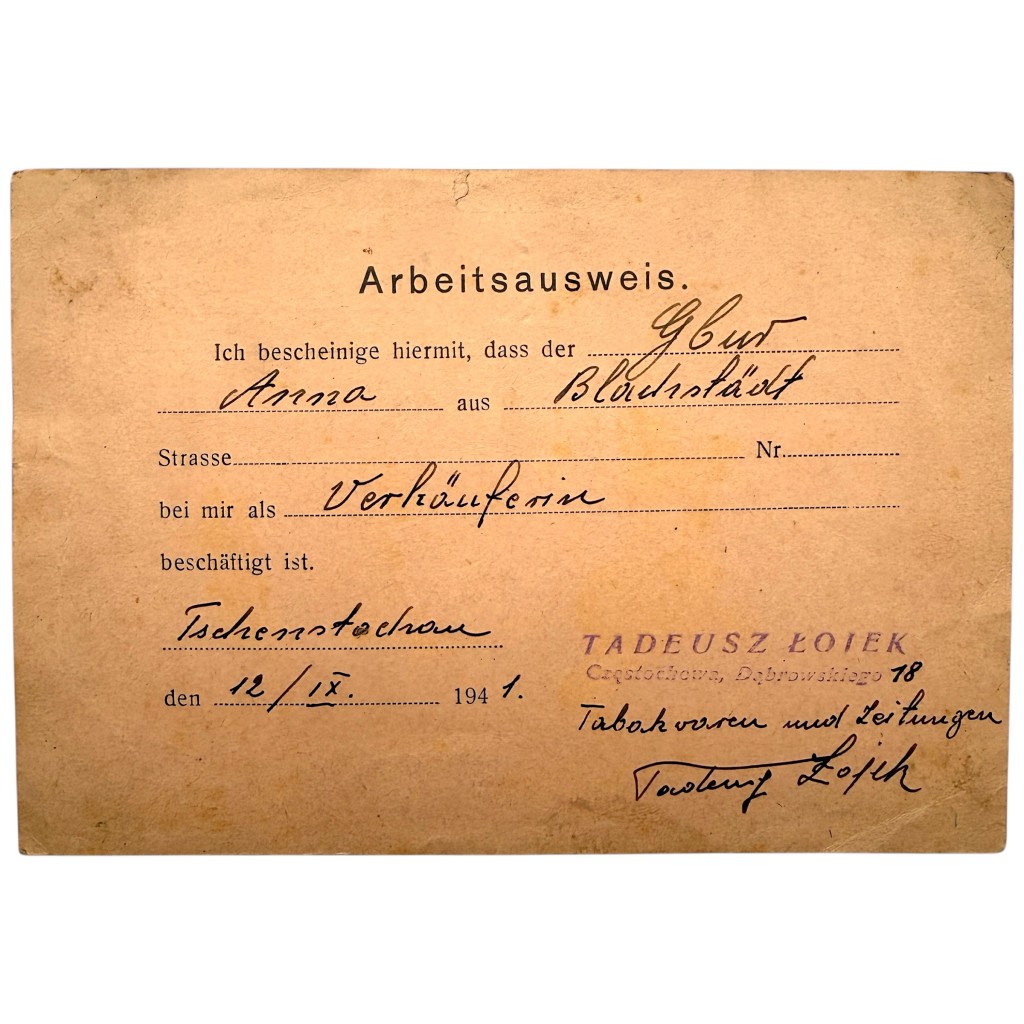 Arbeitsausweis.
Ich bescheinige hiermit, dass der Gbur
Anna aus Blachstädt
Strasse Nr.
bei mir als Verkäuferin
beschäftigt ist.
Tschenstochau
den 12/IX. 1941.
TADEUSZ ŁOJEK
Częstochowa, Dąbrowskiego 18
Tabakwaren und Zeitungen
Tadeusz Łojek